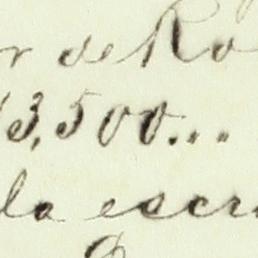 r de Ro
3,500...
la escri